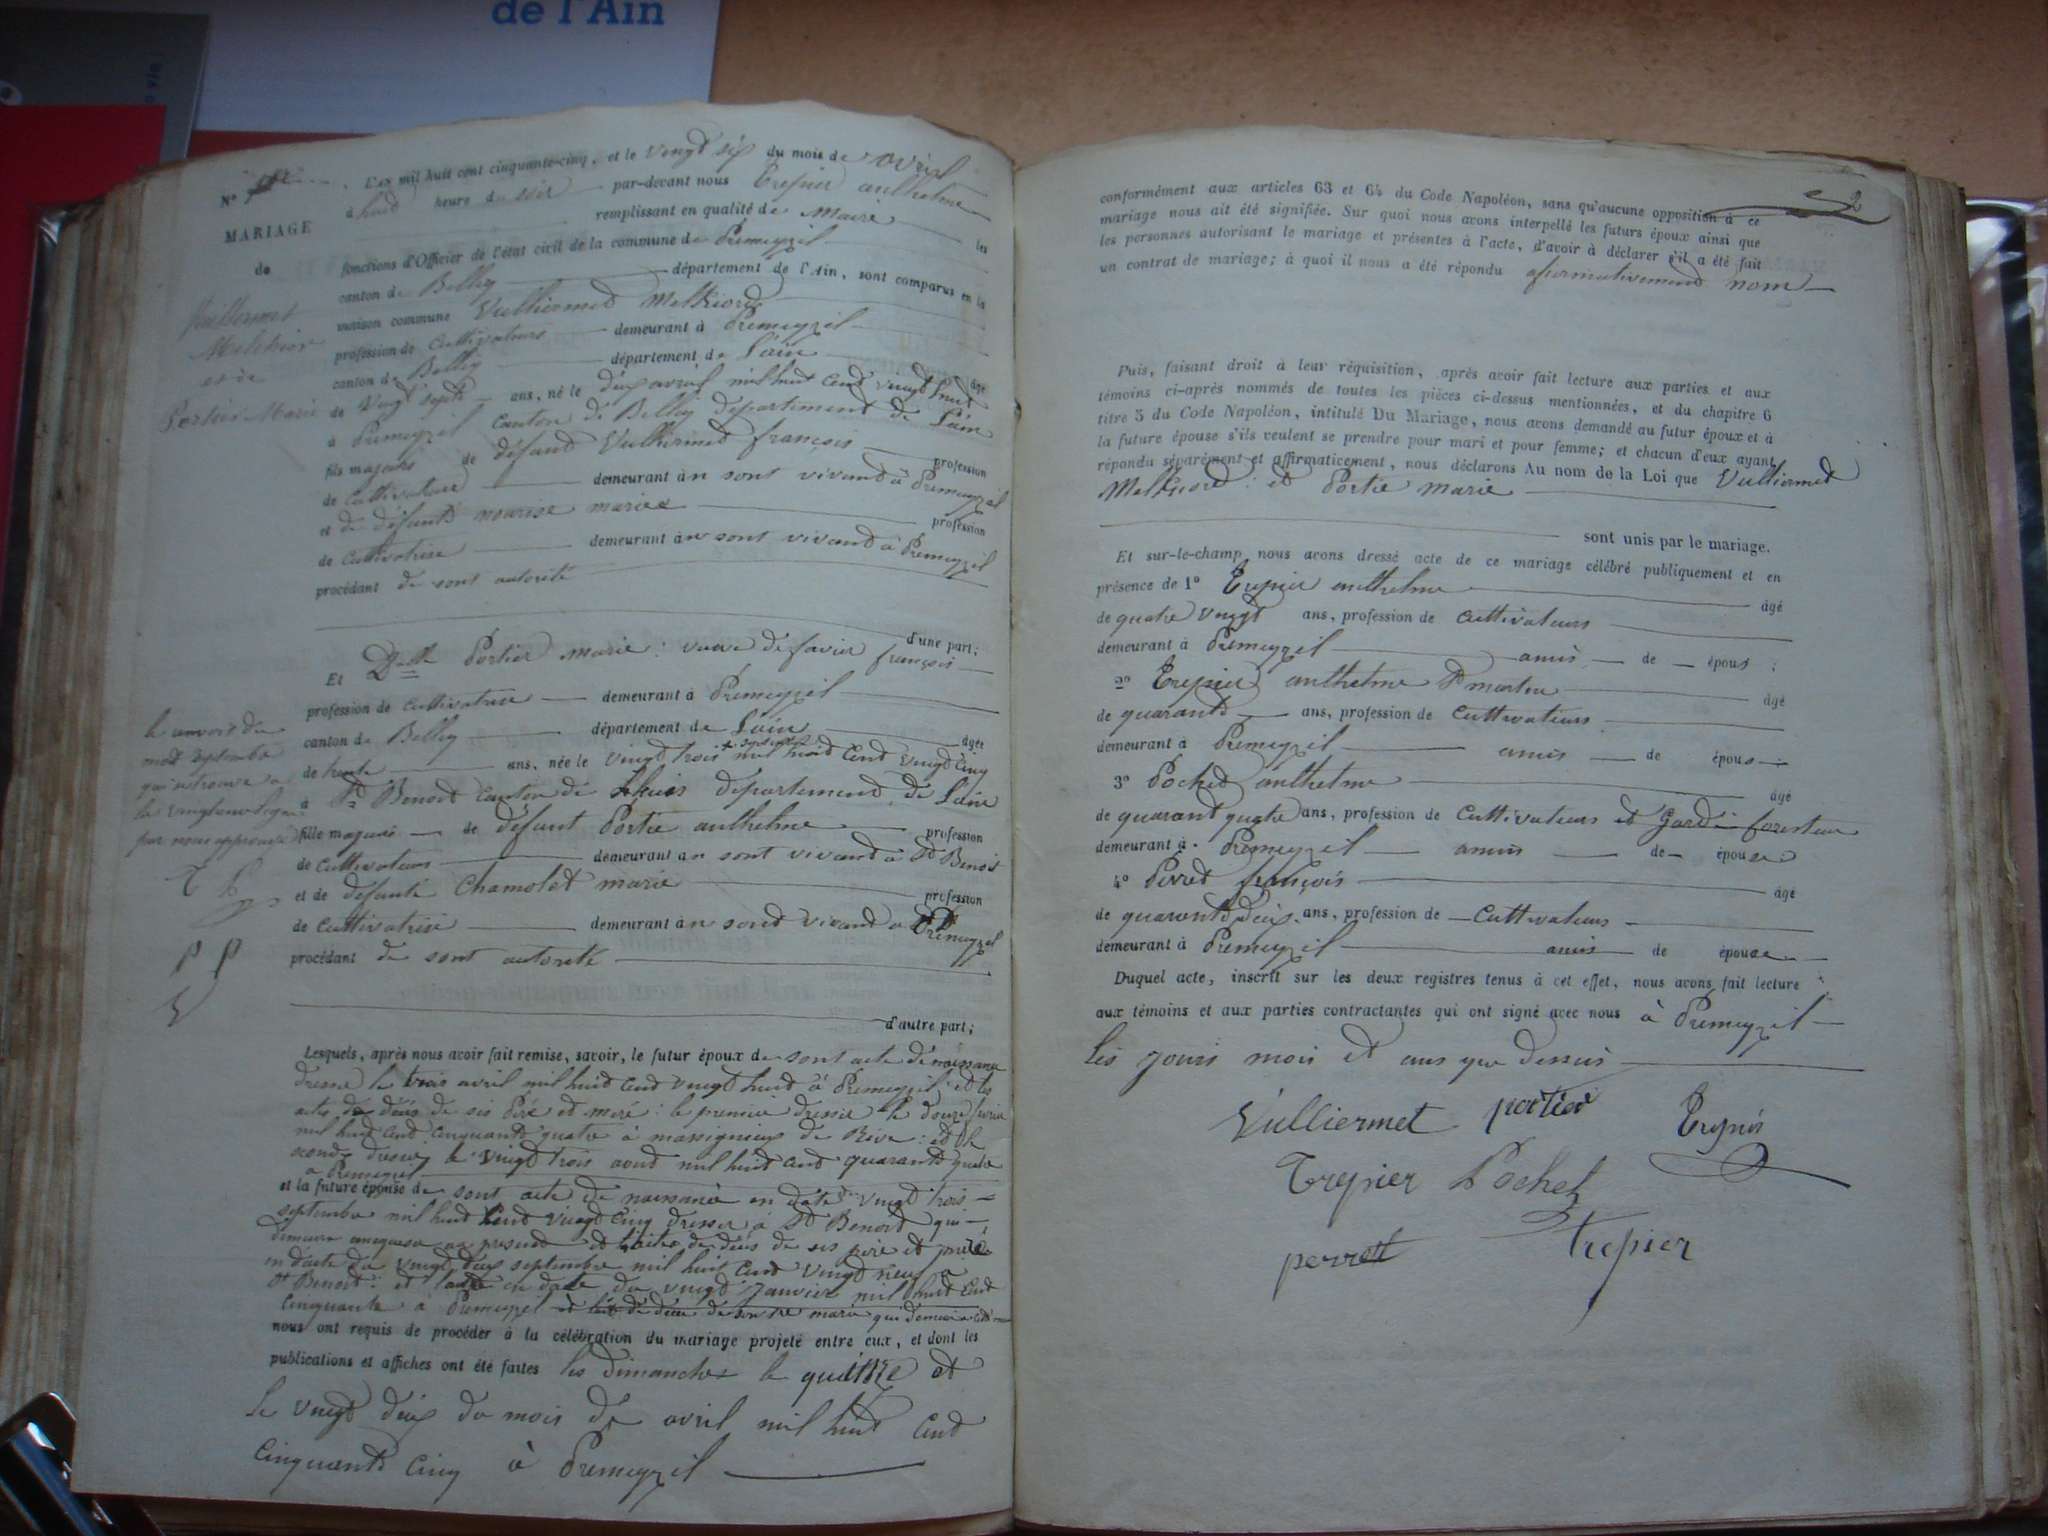 de l'Ain
N°
L'an mil huit cent cinquante-cinq, et le vingt six du mois de avril
à huit heure du soir par-devant nous Trepier anthelme
MARIAGE
remplissant en qualité de Maire les
de
fonctions d'Officier de l'état civil de la commune de Premeyzil
canton de Belley département de l'Ain, sont comparus en la
Vuillermet
maison commune Vulliermet Melkiord
Melchior
profession de cultivateur demeurant à Premeyzil
et de
canton de Belley département de Lain âgé
Portier Marie
de vingt sept ans, né le deux avril mil huit cend vingt huit
à Premeyzil canton de Belley departement de Lain
fils majeur de défand Vulliermet françois profession
de cultivateur demeurant à n sont vivand à Premeyzil
et de défunte nourise mariee profession
de cultivatrise demeurant à n sont vivand à Premeyzil
procédant de sont autorité
d'une part;
Et Dlle Portier marie: veuve de favier françois
profession de cultivatrise demeurant à Premeyzil
canton de Belley département de Lain âgée
le renvoit du
mot septembre
qui se trouve a
la vingt une ligne
par nous approuvé
de trente ans, née le vingt trois + septembre mil huit cend vingt cinq
à St Benoit canton de Lhuis departement de Lain
fille majeure de défunt Portie anthelme profession
de cultivateur demeurant à n sont vivand à St Benoit
T P
et de défunte Chamolet marie profession
de cultivatrise demeurant à n sond vivand a Premeyzil
P P
procédant de sont autorité
V
d'autre part;
Lesquels, après nous avoir fait remise, savoir, le futur époux de sont acte de naissance
dressé le trois avril mil huit cend vingt huit à Premeyzil: et les
actes de déés de ses Péré et meré: le premier dressée le douze fevrier
mil huit cend cinquante quatre à massignieux de Rive: et le
second dressé le vingt trois aout mil huit cend quarante quatre
a Premeyzil
et la future épouse de sont acte de naissance en date du vingt trois
septembre mil huit cent vingt cinq dresser à St Benoit qui
demeure annexer au present et l'acte de déés de ses père et mère
en date du vingt deux septembre mil huit cent vingt neuf a
St Benoit: et l'autre en date du vingt janvier mil huit cent
cinquante à Premeyzil et l'acte de déée de son 1er marie qui demeure
nous ont requis de procéder à la célébration du mariage projeté entre eux, et dont les
publications et affiches ont été faites les dimanches le quinze et
le vingt deux du mois de avril mil huit cend
cinquante cinq à Premeyzil
2
conformément aux articles 63 et 64 du Code Napoléon, sans qu'aucune opposition à ce
mariage nous ait été signifiée. Sur quoi nous avons interpellé les futurs époux ainsi que
les personnes autorisant le mariage et présentes à l'acte, d'avoir à déclarer s'il a été fait
un contrat de mariage; à quoi il nous a été répondu afirmativement nom
Puis, faisant droit à leur réquisition, après avoir fait lecture aux parties et aux
témoins ci-après nommés de toutes les pièces ci-dessus mentionnées, et du chapitre 6
titre 5 du Code Napoléon, intitulé Du Mariage, nous avons demandé au futur époux et à
la future épouse s'ils veulent se prendre pour mari et pour femme; et chacun d'eux ayant
répondu séparément et affirmativement, nous déclarons Au nom de la Loi que Vulliermet
Melkiord: et Portie marie
sont unis par le mariage.
Et sur-le-champ nous avons dressé acte de ce mariage célébré publiquement et en
présence de 1° Trepier anthelme âgé
de quatre vingt ans, profession de cultivateurs
demeurant à Premeyzil amis de époux;
2° Trepier anthelme St martin âgé
de quarante ans, profession de cultivateurs
demeurant à Premeyzil amis de épous
3° Pochet anthelme âgé
de quarant quatre ans, profession de cultivateurs et garde forestier
demeurant à Premeyzil amis de épouse
4° Perret françois âgé
de quarente deux ans, profession de cultivateurs
demeurant à Premeyzil amis de épouse
Duquel acte, inscrit sur les deux registres tenus à cet effet, nous avons fait lecture
aux témoins et aux parties contractantes qui ont signé avec nous à Premeyzil
les jours mois et ans que dessus
Vulliermet portier Trepier
Trepier Pochet
perret trepier